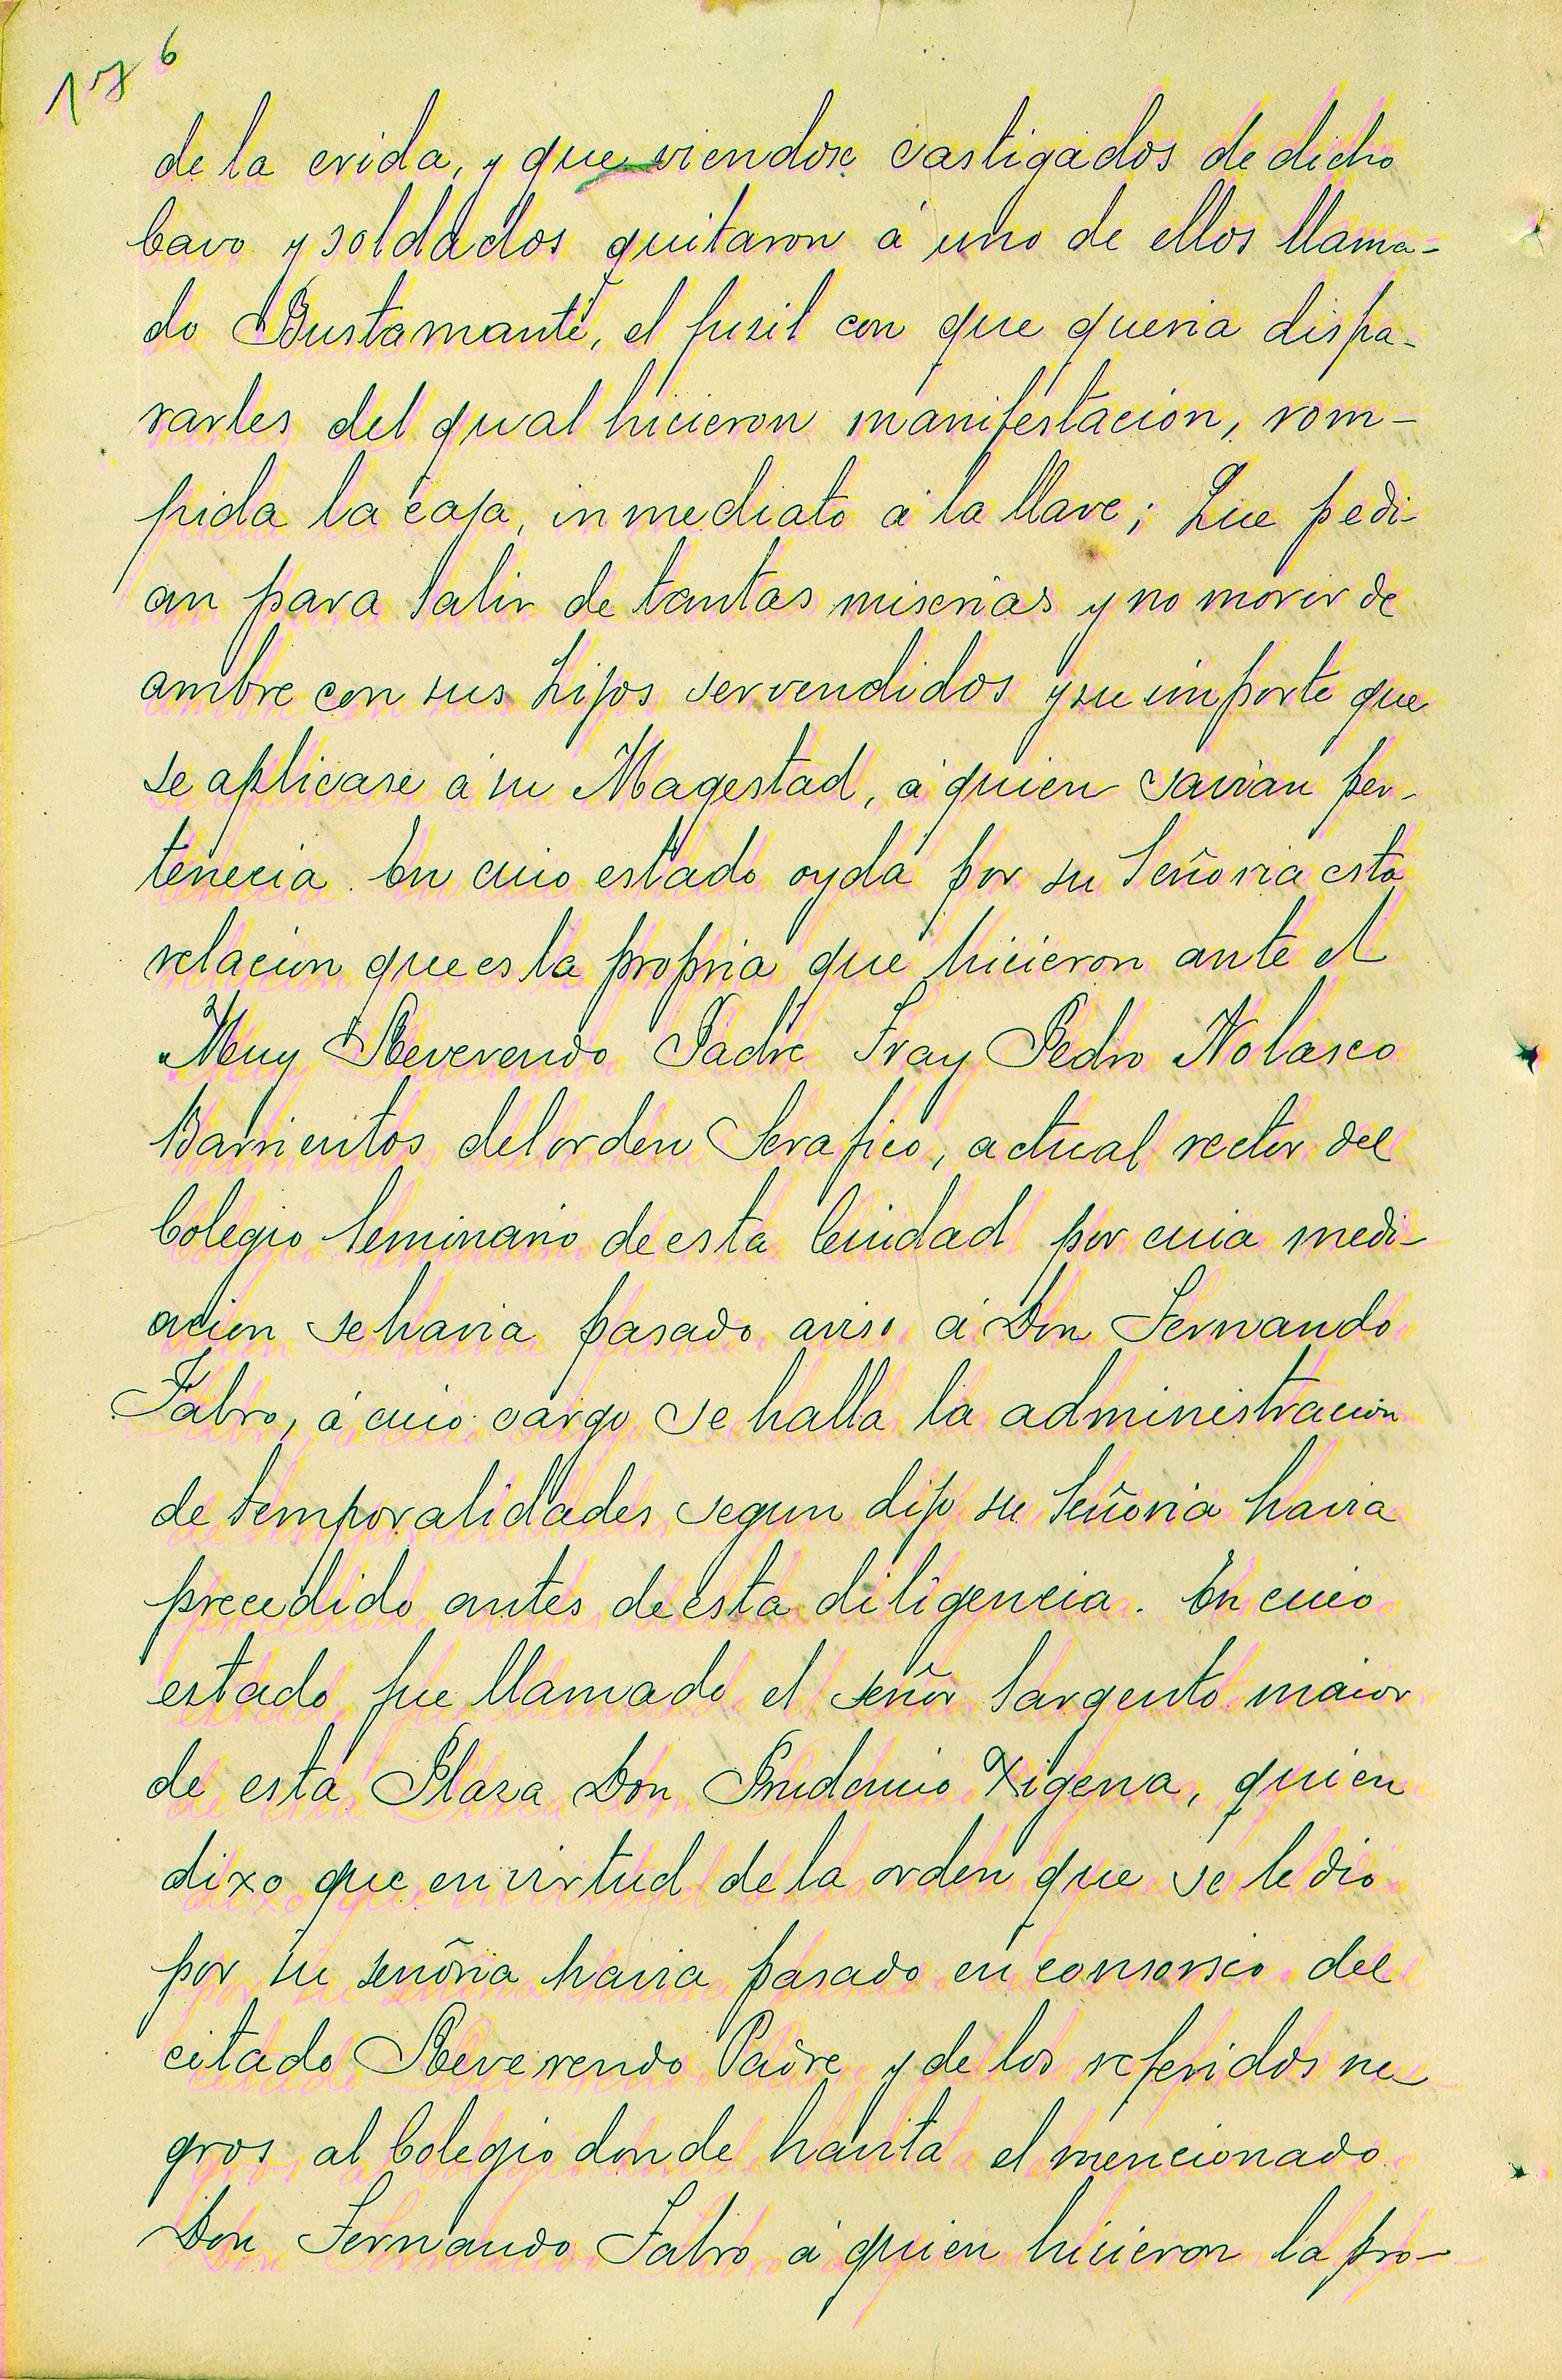 176
de la erida, y que viendose castigados de dicho
Cavo y soldados quitaron á uno de ellos llama-
do Bustamante, el fusil con que queria dispa-
rarles del qual hicieron manifestacion, rom-
pida la caja, inmediato á la llave; Que pedi-
an para salir de tantas miserias y no morir de
ambre con sus hijos ser vendidos y su importe que
se aplicase á su Magestad, á quien savian per-
tenecia. En cuio estado oyda por su Señoria esta
relacion que es la propria que hicieron ante el
Muy Reverendo Padre Fray Pedro Nolasco
Barrientos del orden Serafico, actual rector del
Colegio Seminario de esta Ciudad por cuia medi-
acion se havia pasado aviso á Don Fernando
Fabro, á cuio cargo se halla la administracion
de temporalidades segun dijo su Señoria havia
precedido antes de esta diligencia. En cuio
estado fue llamado el señor Sargento maior
de esta Plaza Don Prudencio Xigena, quien
dixo que en virtud de la orden que se le dio
por su señoria havia pasado en consorsio del
citado Reverendo Padre y de los referidos ne
gros al Colegio donde havita el mencionado
Don Fernando Fabro á quien hicieron la pro-